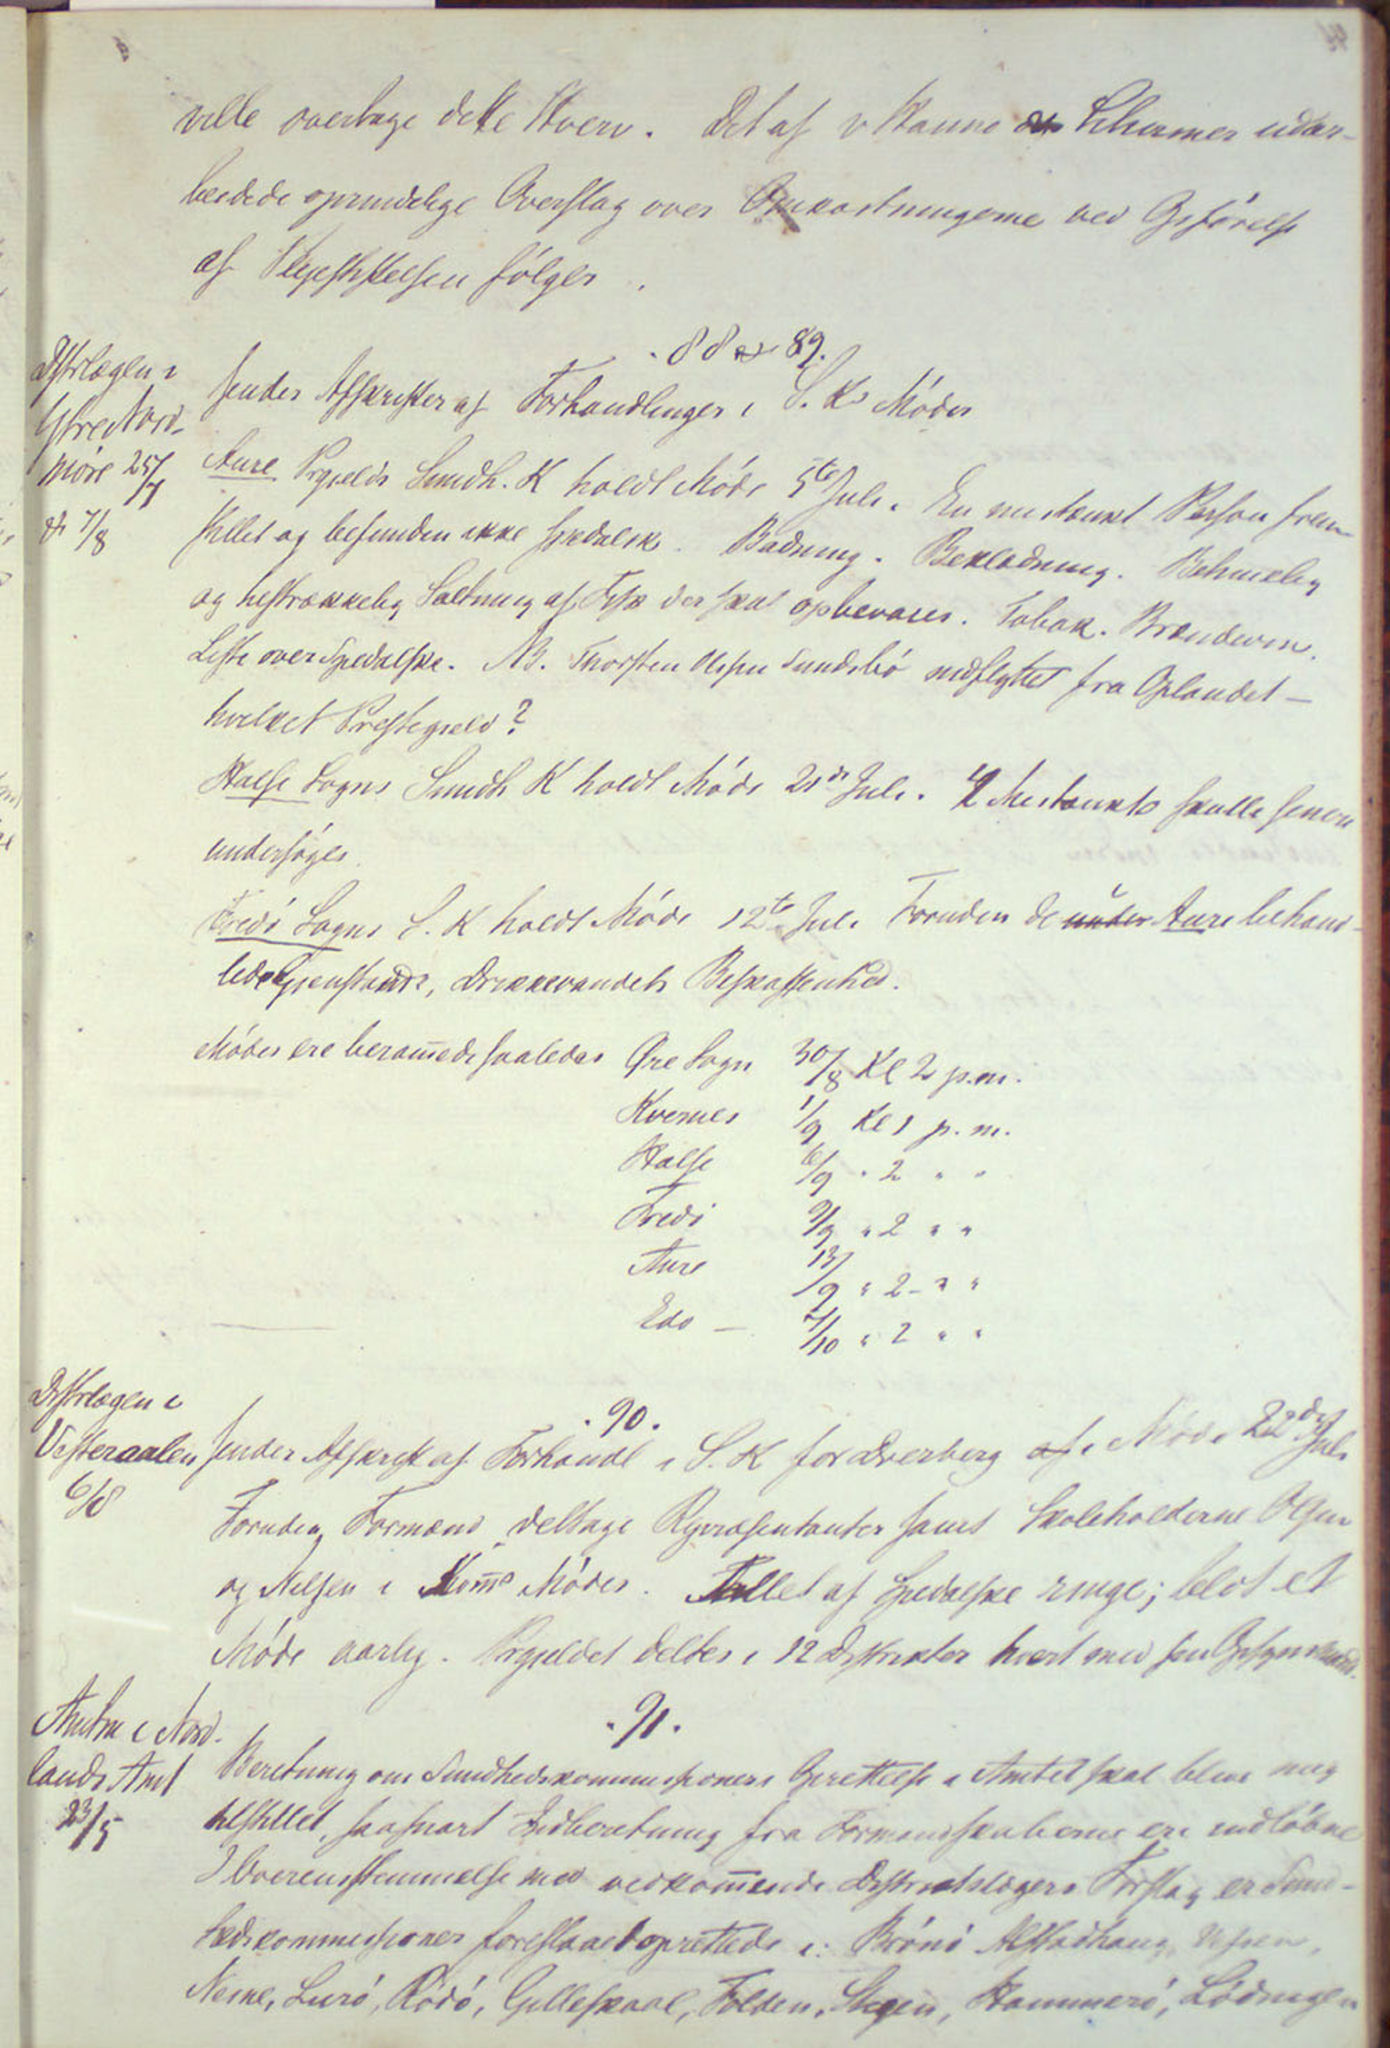 ville overtage dette Hverv. Det af v Hanno & Schirmer udar-
beidede oprindelige Overslag over Omkostningerne ved Opförelse
af Pleiestiftelsen fölger.
. 88 & 89.
Distrlægen i
Ytre Nord-
möre 25/7
& 7/8
sender Afskrifter af Forhandlinger i S. Ks Möder
Aure Prgjelds Sundh. K holdt Möde 5te Juli. En mistænkt Person frem-
stillet og befunden ikke spedalsk. Badning. Beklædning. Betimelig
og tilstrækkelig Saltning af Fisk der skal opbevares. Tobak. Brændeviin.
Liste over Spedalske. NB. Thorsten Olsen Sundsbö indflyttet fra Oplandet –
hvilket Præstegjeld?
Halse Sogns Sundh K holdt Möde 21de Juli. 2 Mistænkte skulle senere
undersöges.
Tredö Sogns S. K holdt Möde 12te Juli Foruden de under Aure behand-
lede Gjenstande, Drikkevandets Beskaffenhed.
Möder ere berammede saaledes Öre Sogn 30/8 Kl 2 p.m.
Kvernes 1/9 Kl 1 p. m.
Halse 6/9 " 2 " "
Tredö 9/9 " 2 " "
Aure 13/9 " 2 " "
Edö – /10 " 2 " "
. 90.
Distrlægen i
Vesteraalen
6/8
sender Afskrift af Forhandl i S. K for Dverberg i Möde 22de Juli
Foruden Formænd deltage Repræsentanter samt Skoleholderne Olsen
og Nilsen i Komms Möder. Tallet af Spedalske ringe; blot et
Möde aarlig. Prgjeldet deltes i 12 Distrikter hvert med sin Opsynsmand.
. 91.
Amtm i Nord-
lands Amt
23/5
Beretning om Sundhedskommissioners Oprettelse i Amtet skal blive mig
tilstillet, saasnart Indberetning fra Formandskaberne ere indlöbne
I Overensstemmelse med vedkommende Distriktslægers Forslag er Sund-
hedskommissioner foreslaaet oprettede i: Brönö Alstadhaug, Vefsen,
Nesne, Lurö, Rödö, Gilleskaal, Folden, Stegen, Hammerö, Lödingen